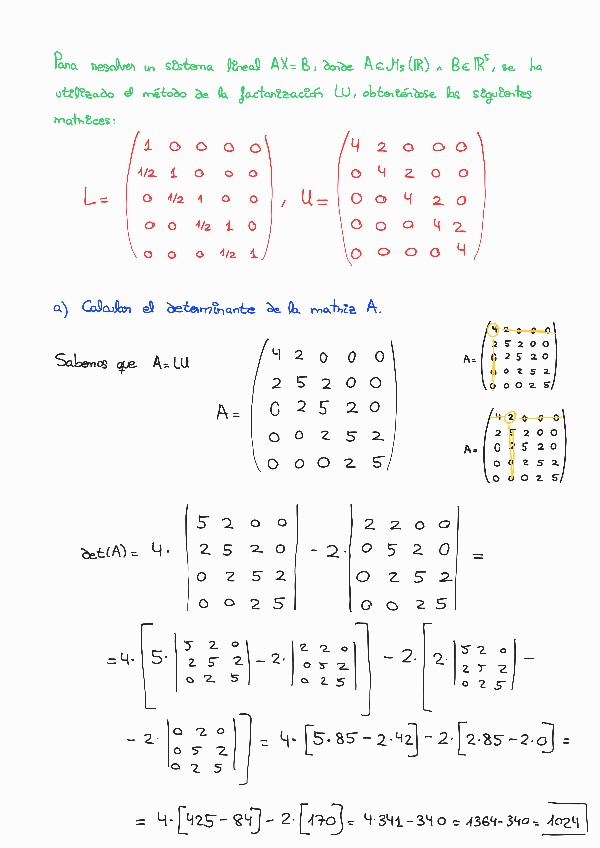 Para resolver un sistema lineal AX=B, donde A∈M₅(ℝ) ∧ B∈ℝ⁵, se ha
utilizado el método de la factorización LU, obteniéndose las siguientes
matrices:
L= (1 0 0 0 0 / 1/2 1 0 0 0 / 0 1/2 1 0 0 / 0 0 1/2 1 0 / 0 0 0 1/2 1), U= (4 2 0 0 0 / 0 4 2 0 0 / 0 0 4 2 0 / 0 0 0 4 2 / 0 0 0 0 4)
a) Calcular el determinante de la matriz A.
Sabemos que A=LU
A= (4 2 0 0 0 / 2 5 2 0 0 / 0 2 5 2 0 / 0 0 2 5 2 / 0 0 0 2 5)
A= (4 2 0 0 0 / 2 5 2 0 0 / 0 2 5 2 0 / 0 0 2 5 2 / 0 0 0 2 5)
A= (4 2 0 0 0 / 2 5 2 0 0 / 0 2 5 2 0 / 0 0 2 5 2 / 0 0 0 2 5)
det(A) = 4· |5 2 0 0 / 2 5 2 0 / 0 2 5 2 / 0 0 2 5| - 2· |2 2 0 0 / 0 5 2 0 / 0 2 5 2 / 0 0 2 5| =
=4· [5· |5 2 0 / 2 5 2 / 0 2 5| - 2· |2 2 0 / 0 5 2 / 0 2 5|] - 2· [2· |5 2 0 / 2 5 2 / 0 2 5| -
- 2· |0 2 0 / 0 5 2 / 0 2 5|] = 4· [5·85 - 2·42] - 2· [2·85 - 2·0] =
= 4· [425 - 84] - 2· [170] = 4·341 - 340 = 1364 - 340 = 1024